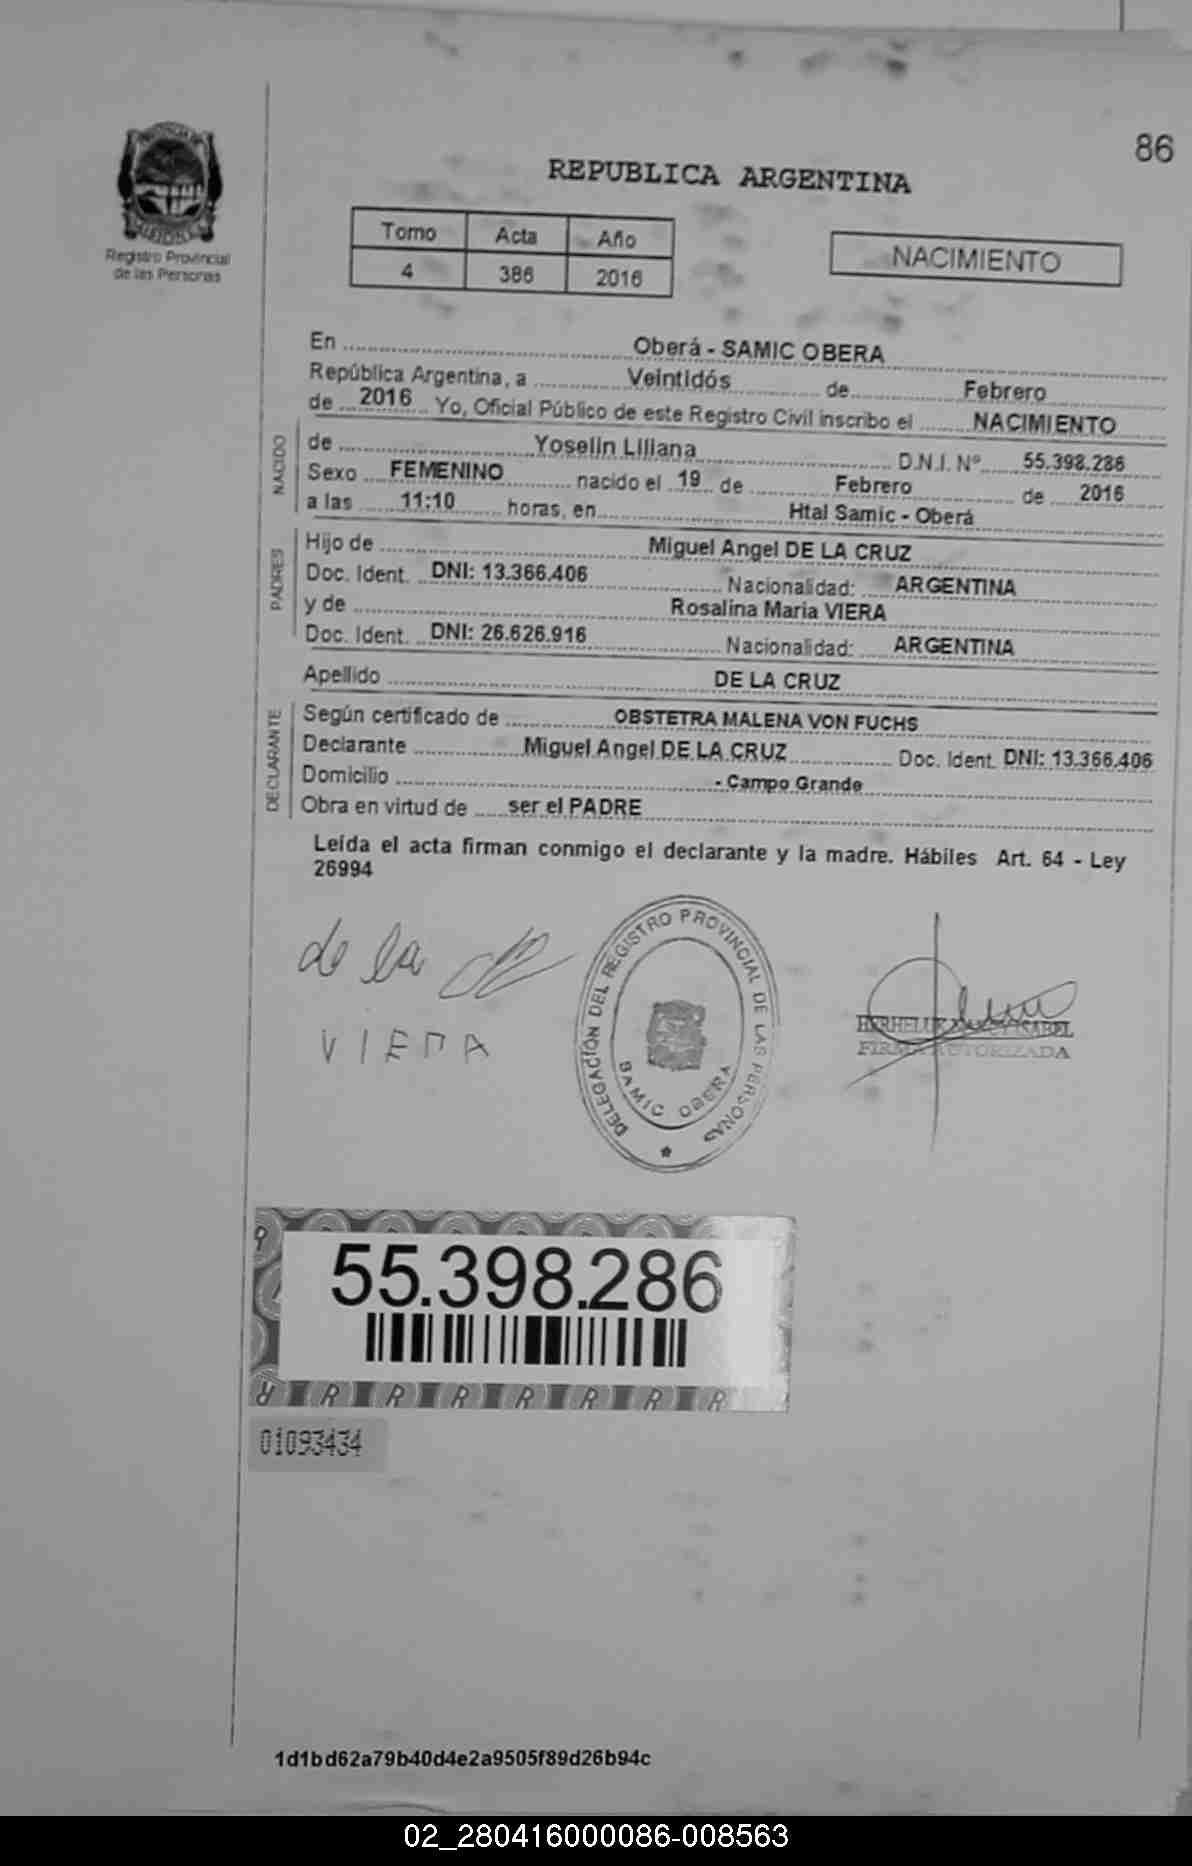 86
REPUBLICA ARGENTINA
Registro Provincial
de las Personas
Tomo Acta Año
4 386 2016
NACIMIENTO
En Oberá - SAMIC OBERA
República Argentina, a Veintidós de Febrero
de 2016 Yo, Oficial Público de este Registro Civil inscribo el NACIMIENTO
NACIDO
de Yoselin Liliana D.N.I. Nº 55.398.286
Sexo FEMENINO nacido el 19 de Febrero de 2016
a las 11:10 horas, en Htal Samic - Oberá
PADRES
Hijo de Miguel Angel DE LA CRUZ
Doc. Ident. DNI: 13.366.406 Nacionalidad: ARGENTINA
y de Rosalina Maria VIERA
Doc. Ident. DNI: 26.626.916 Nacionalidad: ARGENTINA
Apellido DE LA CRUZ
DECLARANTE
Según certificado de OBSTETRA MALENA VON FUCHS
Declarante Miguel Angel DE LA CRUZ Doc. Ident. DNI: 13.366.406
Domicilio - Campo Grande
Obra en virtud de ser el PADRE
Leída el acta firman conmigo el declarante y la madre. Hábiles Art. 64 - Ley
26994
de la
VIERA
DELEGACIÓN DEL REGISTRO PROVINCIAL DE LAS PERSONAS
SAMIC OBERA
ISABEL
FIRMA AUTORIZADA
55.398.286
R R R R R R R
01093434
1d1bd62a79b40d4e2a9505f89d26b94c
02_280416000086-008563